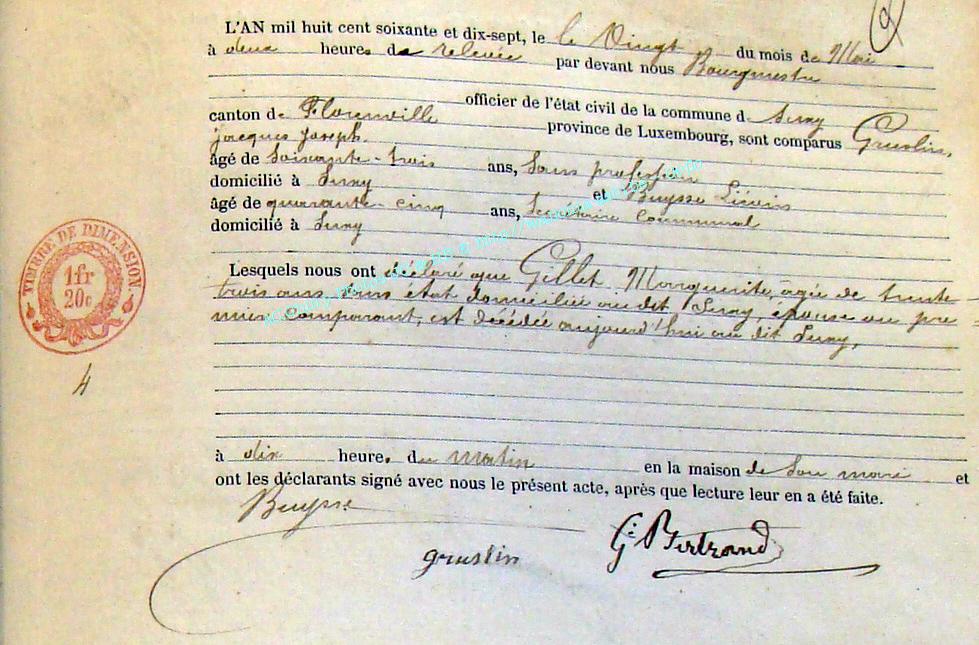 L'AN mil huit cent soixante et dix-sept, le le Vingt du mois de Mai
à deux heures de relevée par devant nous Bourgmestre
officier de l'état civil de la commune d Suxy
canton de Florenville province de Luxembourg, sont comparus Gruslin,
Jacques Joseph.
âgé de soixante-trois ans, sans profession
domicilié à Suxy et Buysse Liévin
âgé de quarante-cinq ans, Secrétaire Communal
domicilié à Suxy
Lesquels nous ont déclaré que Gillet Marguerite, agée de trente
trois ans, sans état domiciliée au dit Suxy, épouse au pre
mier comparant, est décédée aujourd'hui au dit Suxy,
à dix heures du matin en la maison de son mari et
ont les déclarants signé avec nous le présent acte, après que lecture leur en a été faite.
Buysse
gruslin
G. Bertrand
TIMBRE DE DIMENSION
1fr
20c
4